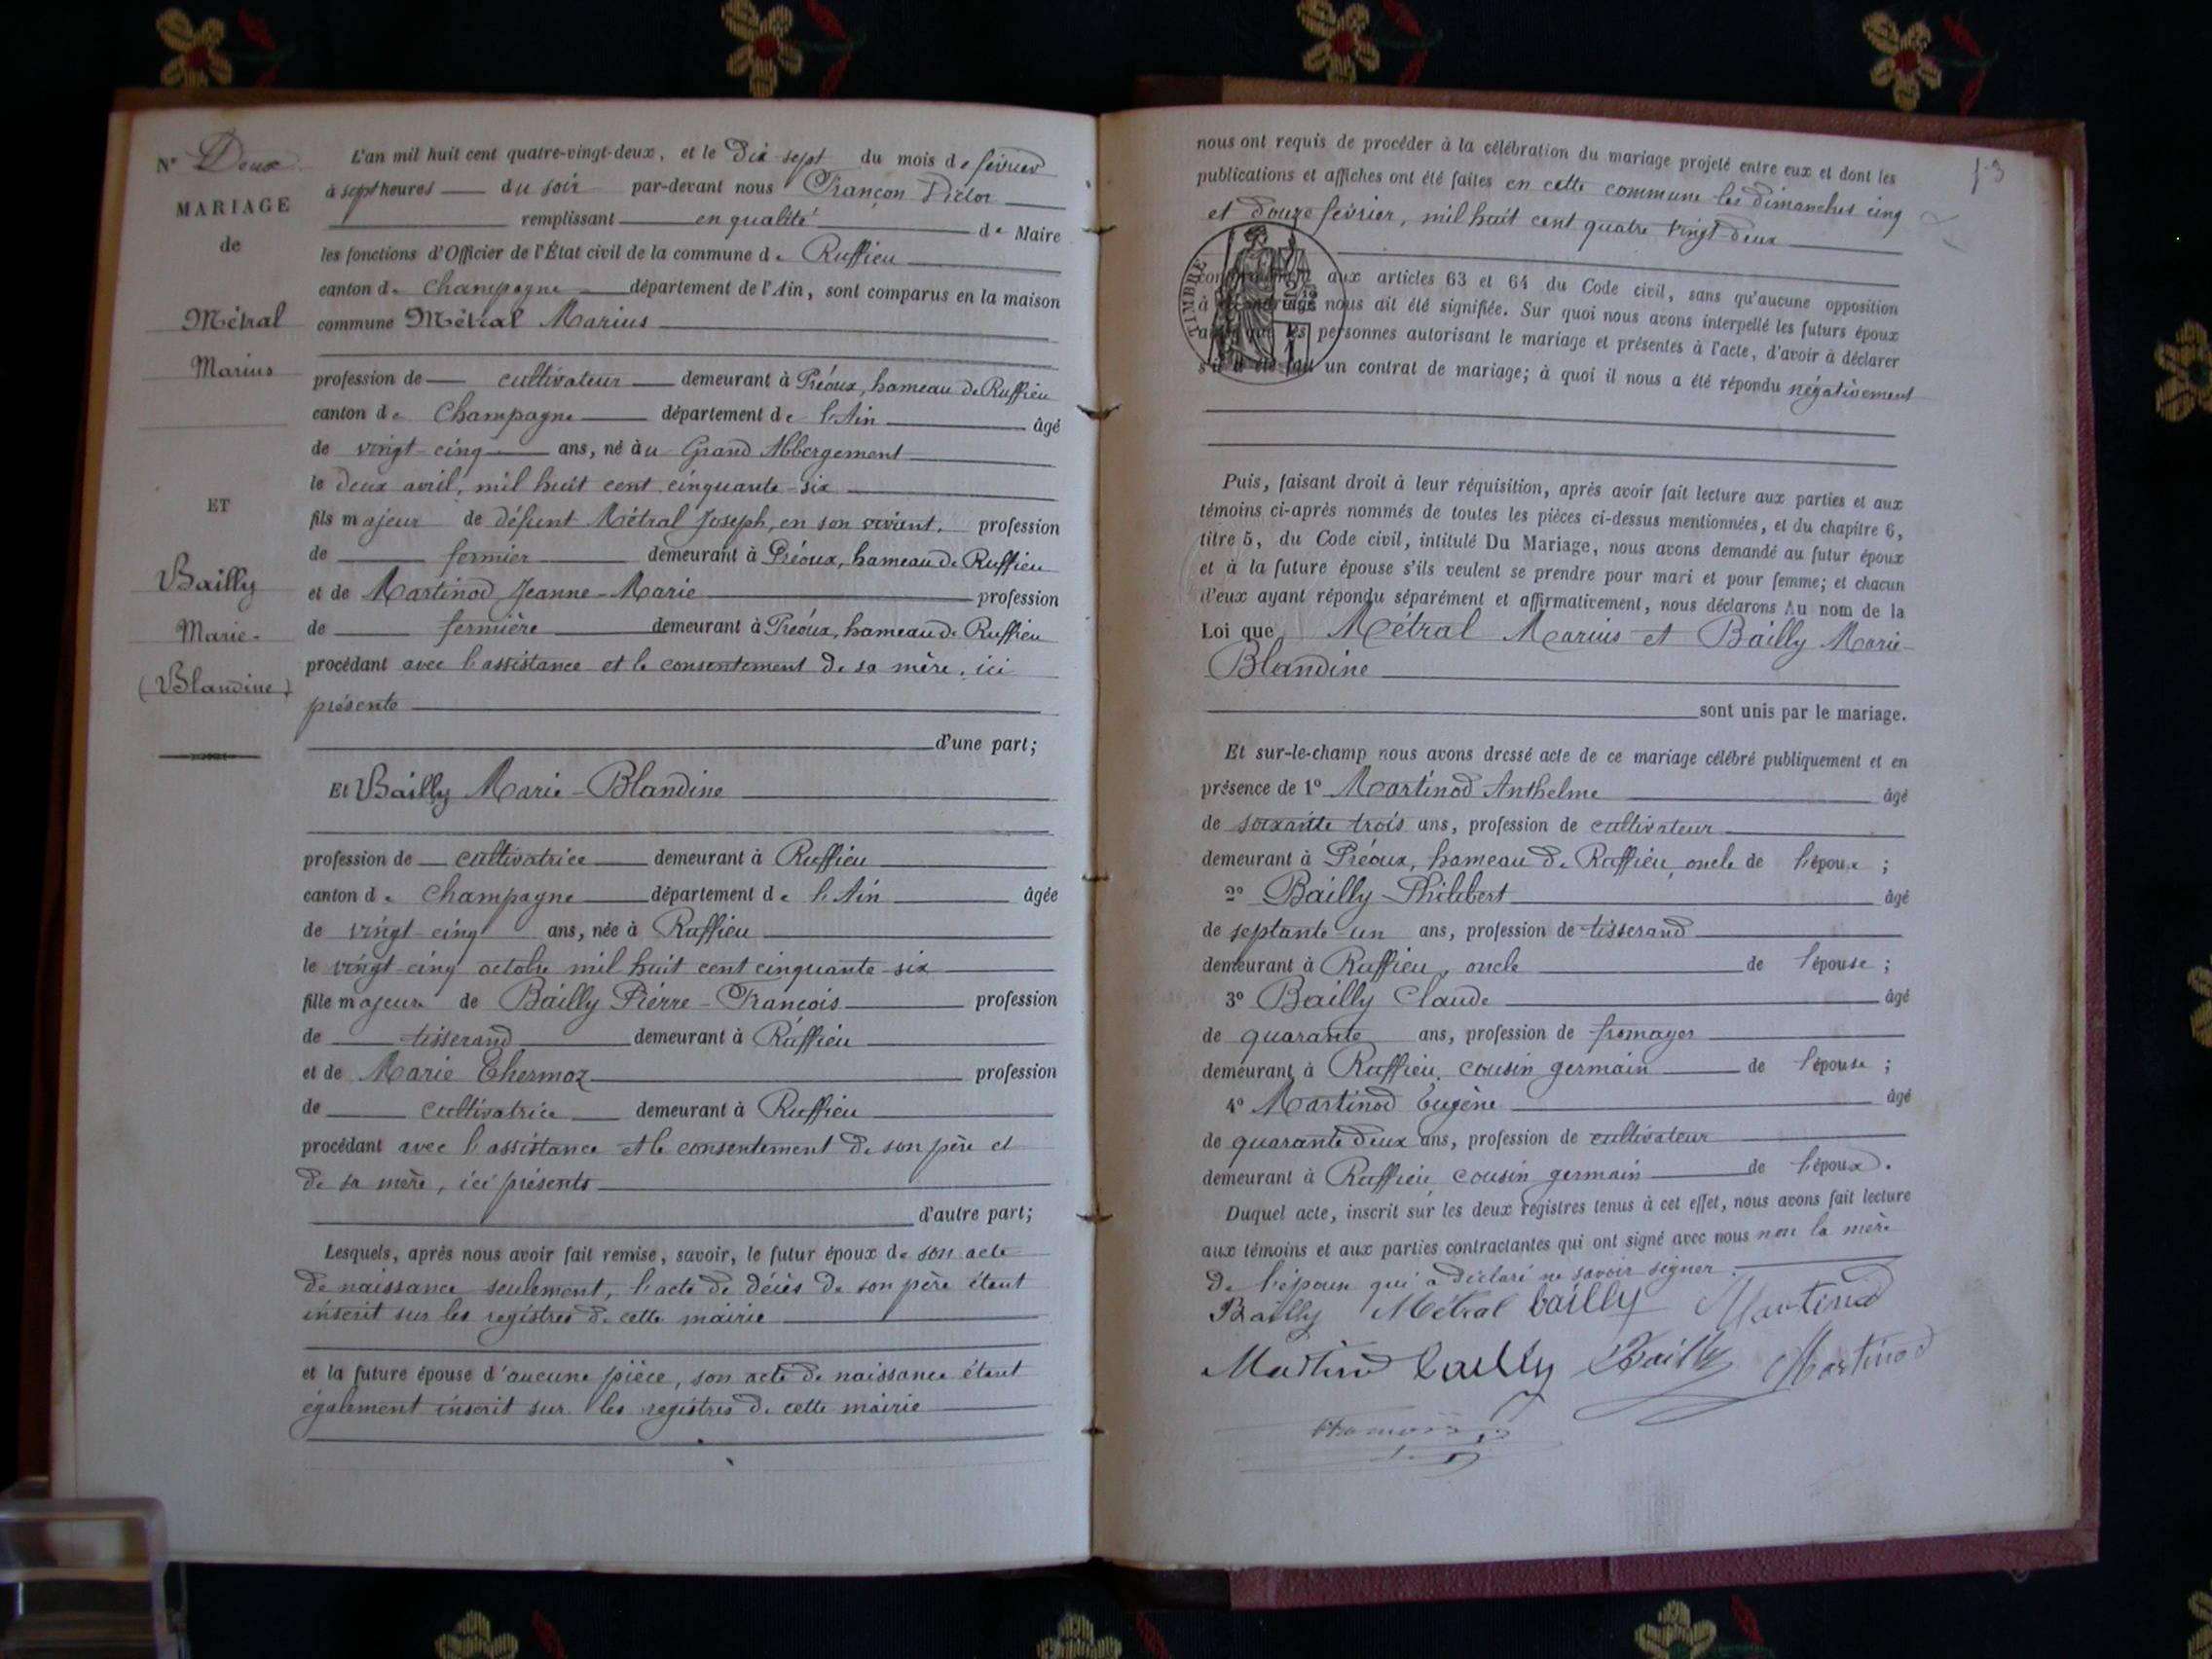 N° Deux
MARIAGE
de
Métral
Marius
ET
Bailly
Marie-
(Blandine)
L'an mil huit cent quatre-vingt-deux, et le dix sept du mois de février
à sept heures du soir par-devant nous Françon Victor
remplissant en qualité de Maire
les fonctions d'Officier de l'État civil de la commune de Ruffieu
canton de Champagne département de l'Ain, sont comparus en la maison
commune Métral Marius
profession de cultivateur demeurant à Préoux, hameau de Ruffieu
canton de Champagne département de l'Ain âgé
de vingt-cinq ans, né au Grand Abbergement
le deux avril, mil huit cent cinquante-six
fils majeur de défunt Métral Joseph, en son vivant, profession
de fermier demeurant à Préoux, hameau de Ruffieu
et de Martinod Jeanne-Marie profession
de fermière demeurant à Préoux, hameau de Ruffieu
procédant avec l'assistance et le consentement de sa mère, ici
présente
d'une part;
Et Bailly Marie-Blandine
profession de cultivatrice demeurant à Ruffieu
canton de Champagne département de l'Ain âgée
de vingt-cinq ans, née à Ruffieu
le vingt-cinq octobre mil huit cent cinquante-six
fille majeure de Bailly Pierre-François profession
de tisserand demeurant à Ruffieu
et de Marie Chermoz profession
de cultivatrice demeurant à Ruffieu
procédant avec l'assistance et le consentement de son père et
de sa mère, ici présents
d'autre part;
Lesquels, après nous avoir fait remise, savoir, le futur époux de son acte
de naissance seulement, l'acte de décès de son père étant
inscrit sur les registres de cette mairie
et la future épouse d'aucune pièce, son acte de naissance étant
également inscrit sur les registres de cette mairie
f 3
nous ont requis de procéder à la célébration du mariage projeté entre eux et dont les
publications et affiches ont été faites en cette commune les dimanches cinq
et douze février, mil huit cent quatre vingt deux
TIMBRE
aux articles 63 et 64 du Code civil, sans qu'aucune opposition
à nous ait été signifiée. Sur quoi nous avons interpellé les futurs époux
les personnes autorisant le mariage et présentes à l'acte, d'avoir à déclarer
s'il a été fait un contrat de mariage; à quoi il nous a été répondu négativement
Puis, faisant droit à leur réquisition, après avoir fait lecture aux parties et aux
témoins ci-après nommés de toutes les pièces ci-dessus mentionnées, et du chapitre 6,
titre 5, du Code civil, intitulé Du Mariage, nous avons demandé au futur époux
et à la future épouse s'ils veulent se prendre pour mari et pour femme; et chacun
d'eux ayant répondu séparément et affirmativement, nous déclarons Au nom de la
Loi que Métral Marius et Bailly Marie-
Blandine
sont unis par le mariage.
Et sur-le-champ nous avons dressé acte de ce mariage célébré publiquement et en
présence de 1° Martinod Anthelme âgé
de soixante trois ans, profession de cultivateur
demeurant à Préoux, hameau de Ruffieu, oncle de l'époux ;
2° Bailly Philibert âgé
de septante-un ans, profession de tisserand
demeurant à Ruffieu, oncle de l'épouse ;
3° Bailly Claude âgé
de quarante ans, profession de fromager
demeurant à Ruffieu, cousin germain de l'épouse ;
4° Martinod Eugène âgé
de quarante deux ans, profession de cultivateur
demeurant à Ruffieu cousin germain de l'époux.
Duquel acte, inscrit sur les deux registres tenus à cet effet, nous avons fait lecture
aux témoins et aux parties contractantes qui ont signé avec nous non la mère
de l'époux qui a déclaré ne savoir signer.
Bailly Métral bailly Martinod
Martinod bailly Bailly Martinod